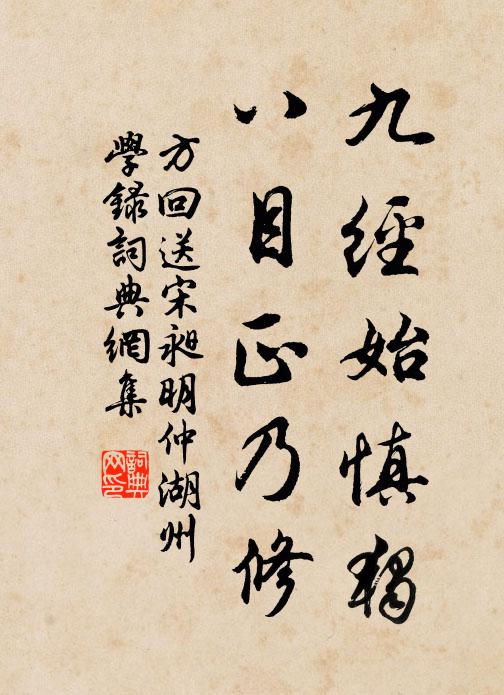 九經始慎獨
八目正乃修
方回送宋昶明仲湖州
學録詞典網集
詞典网印